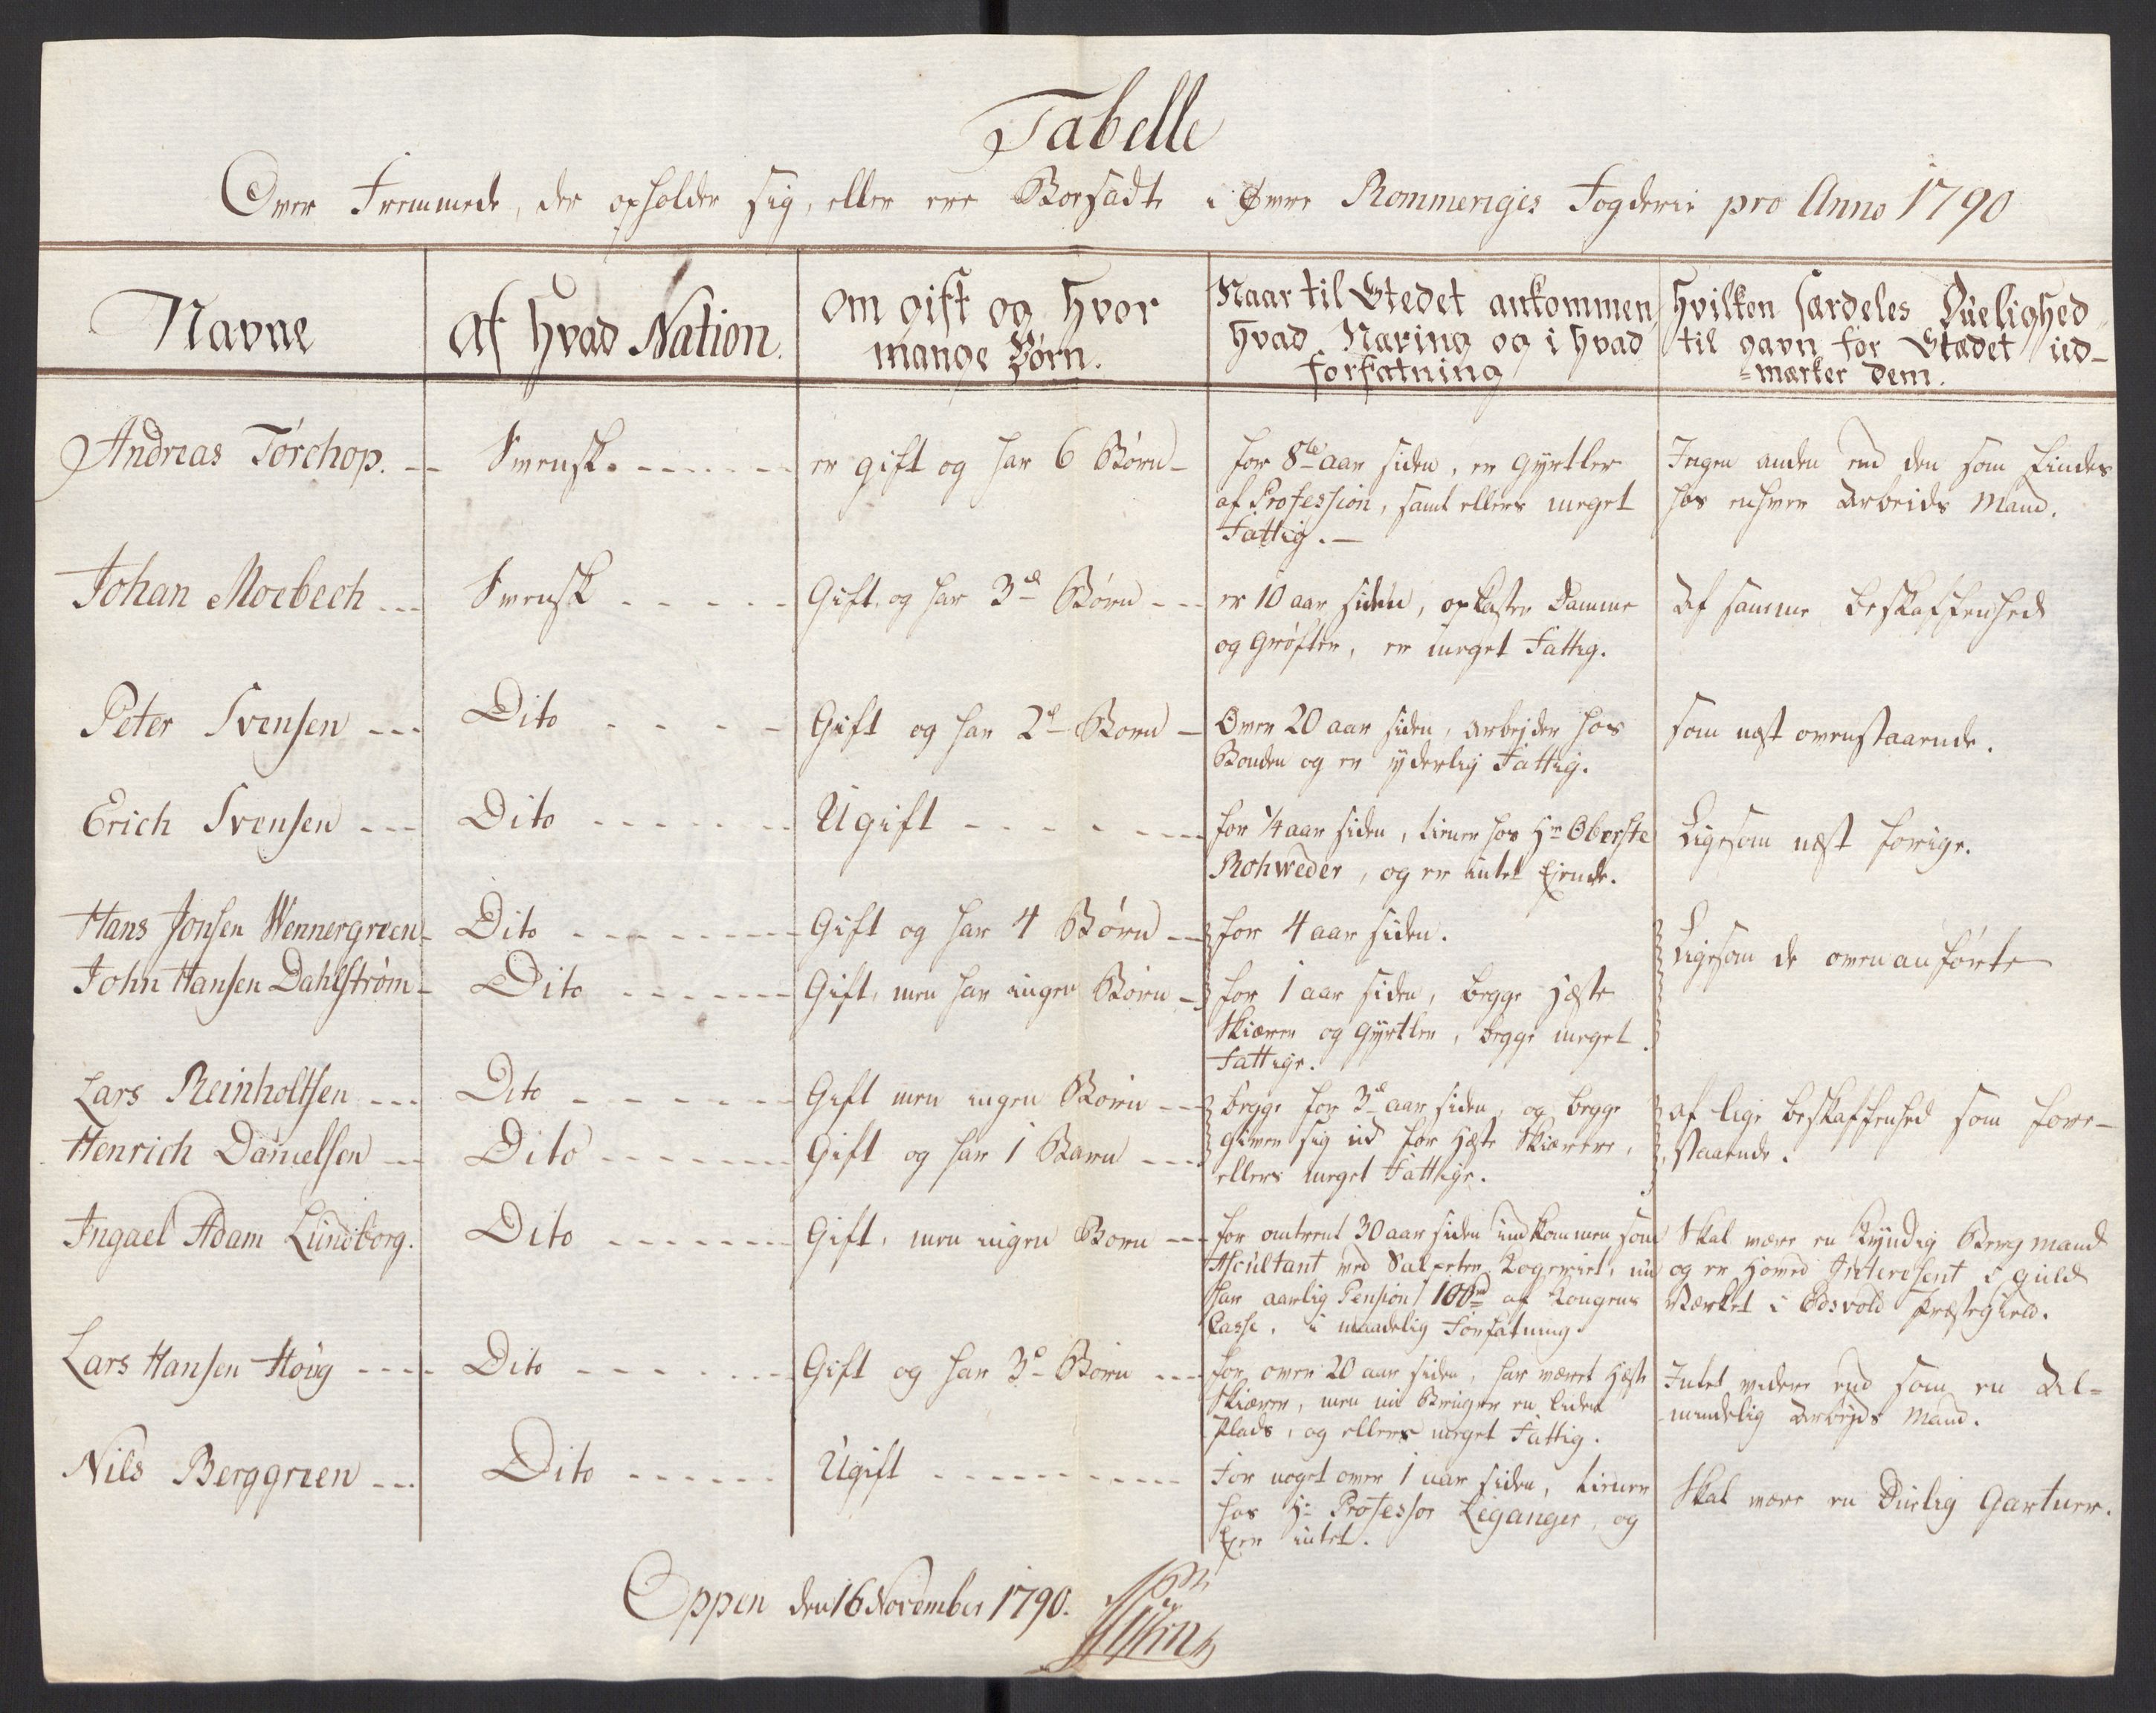 Tabelle
Over Fremmede, der opholder sig, eller ere Boesadte i Øvre Rommeriges Fogderie pro Anno 1790
Navne
Af hvad Nation.
Om gift og hvor
mange Børn.
Naar til Stedet ankommen,
hvad Næring og i hvad
forfatning
Hvilken særdeles Duelighed
til gavn for Stædet ud-
=mærker dem.
Andreas Törchop. --
Svensk. ------
er gift og har 6 Børn -
for 8te aar siden, er Gyrtler
af Profession, samt ellers meget
Fattig. -
Ingen anden end den som findes
hos enhver Arbeids Mand.
Johan Moebech ---
Svensk -----
Gift, og har 3de Børn ---
er 10 aar siden, opkaster Damme
og Grøfter, er meget Fattig.
Af samme beskaffenhed
Peter Svensen ---
Dito ----
Gift og har 2de Born -
Over 20 aar siden, arbejder hos
Bonden og er yderlig Fattig.
som næst ovenstaaende.
Erich Svensen ---
Dito -----
Ugift -------
for 1/4 aar siden, tiener hos Hr Oberste
Rohweder, og er intet Ejende.
Ligesom næst forige.
Hans Jonsen Wennergreen -
Dito -------
Gift og har 4 Børn --
for 4 aar siden.
Ligesom de ovenanførte
John Hansen Dahlstrøm -
Dito ------
Gift, men har ingen Børn -
for 1 aar siden, begge Hæste
Skiærer og Gyrtler, begge meget
Fattige.
Lars Reinholtsen ---
Dito ------
Gift men ingen Børn --
begge for 3de aar siden, og begge
giver sig ud for Hæste Skiærere,
ellers meget Fattige.
af lige beskaffenhed som fore-
staaende.
Henrich Danielsen --
Dito -------
Gift og har 1 Barn ---
Ingael Adam Lundborg.
Dito -------
Gift, men ingen Born --
for omtrent 30 aar siden indkommen som
Ascultant ved Salpeter Kogeriet, nu
har aarlig Pension 100rd af Kongens
Casse, i maadelig Forfatning.
Skal være en kyndig Berg mand
og er Hoved Interesent i Guld
Værket i Edsvold Præstegield.
Lars Hansen Höug ----
Dito ------
Gift og har 3de Børn ---
for over 20 aar siden, har været Hæste
Skiærer, men nu Bruger en liden
Plads, og ellers meget Fattig.
Intet videre end som en Al-
mindelig Arbejds Mand.
Nils Berggreen ---
Dito ------
Ugift ----------
For noget over 1 aar siden, tiener
hos Hr Professor Leganger, og
Ejer intet.
Skal være en Duelig Gartner.
Oppen den 16 November 1790.